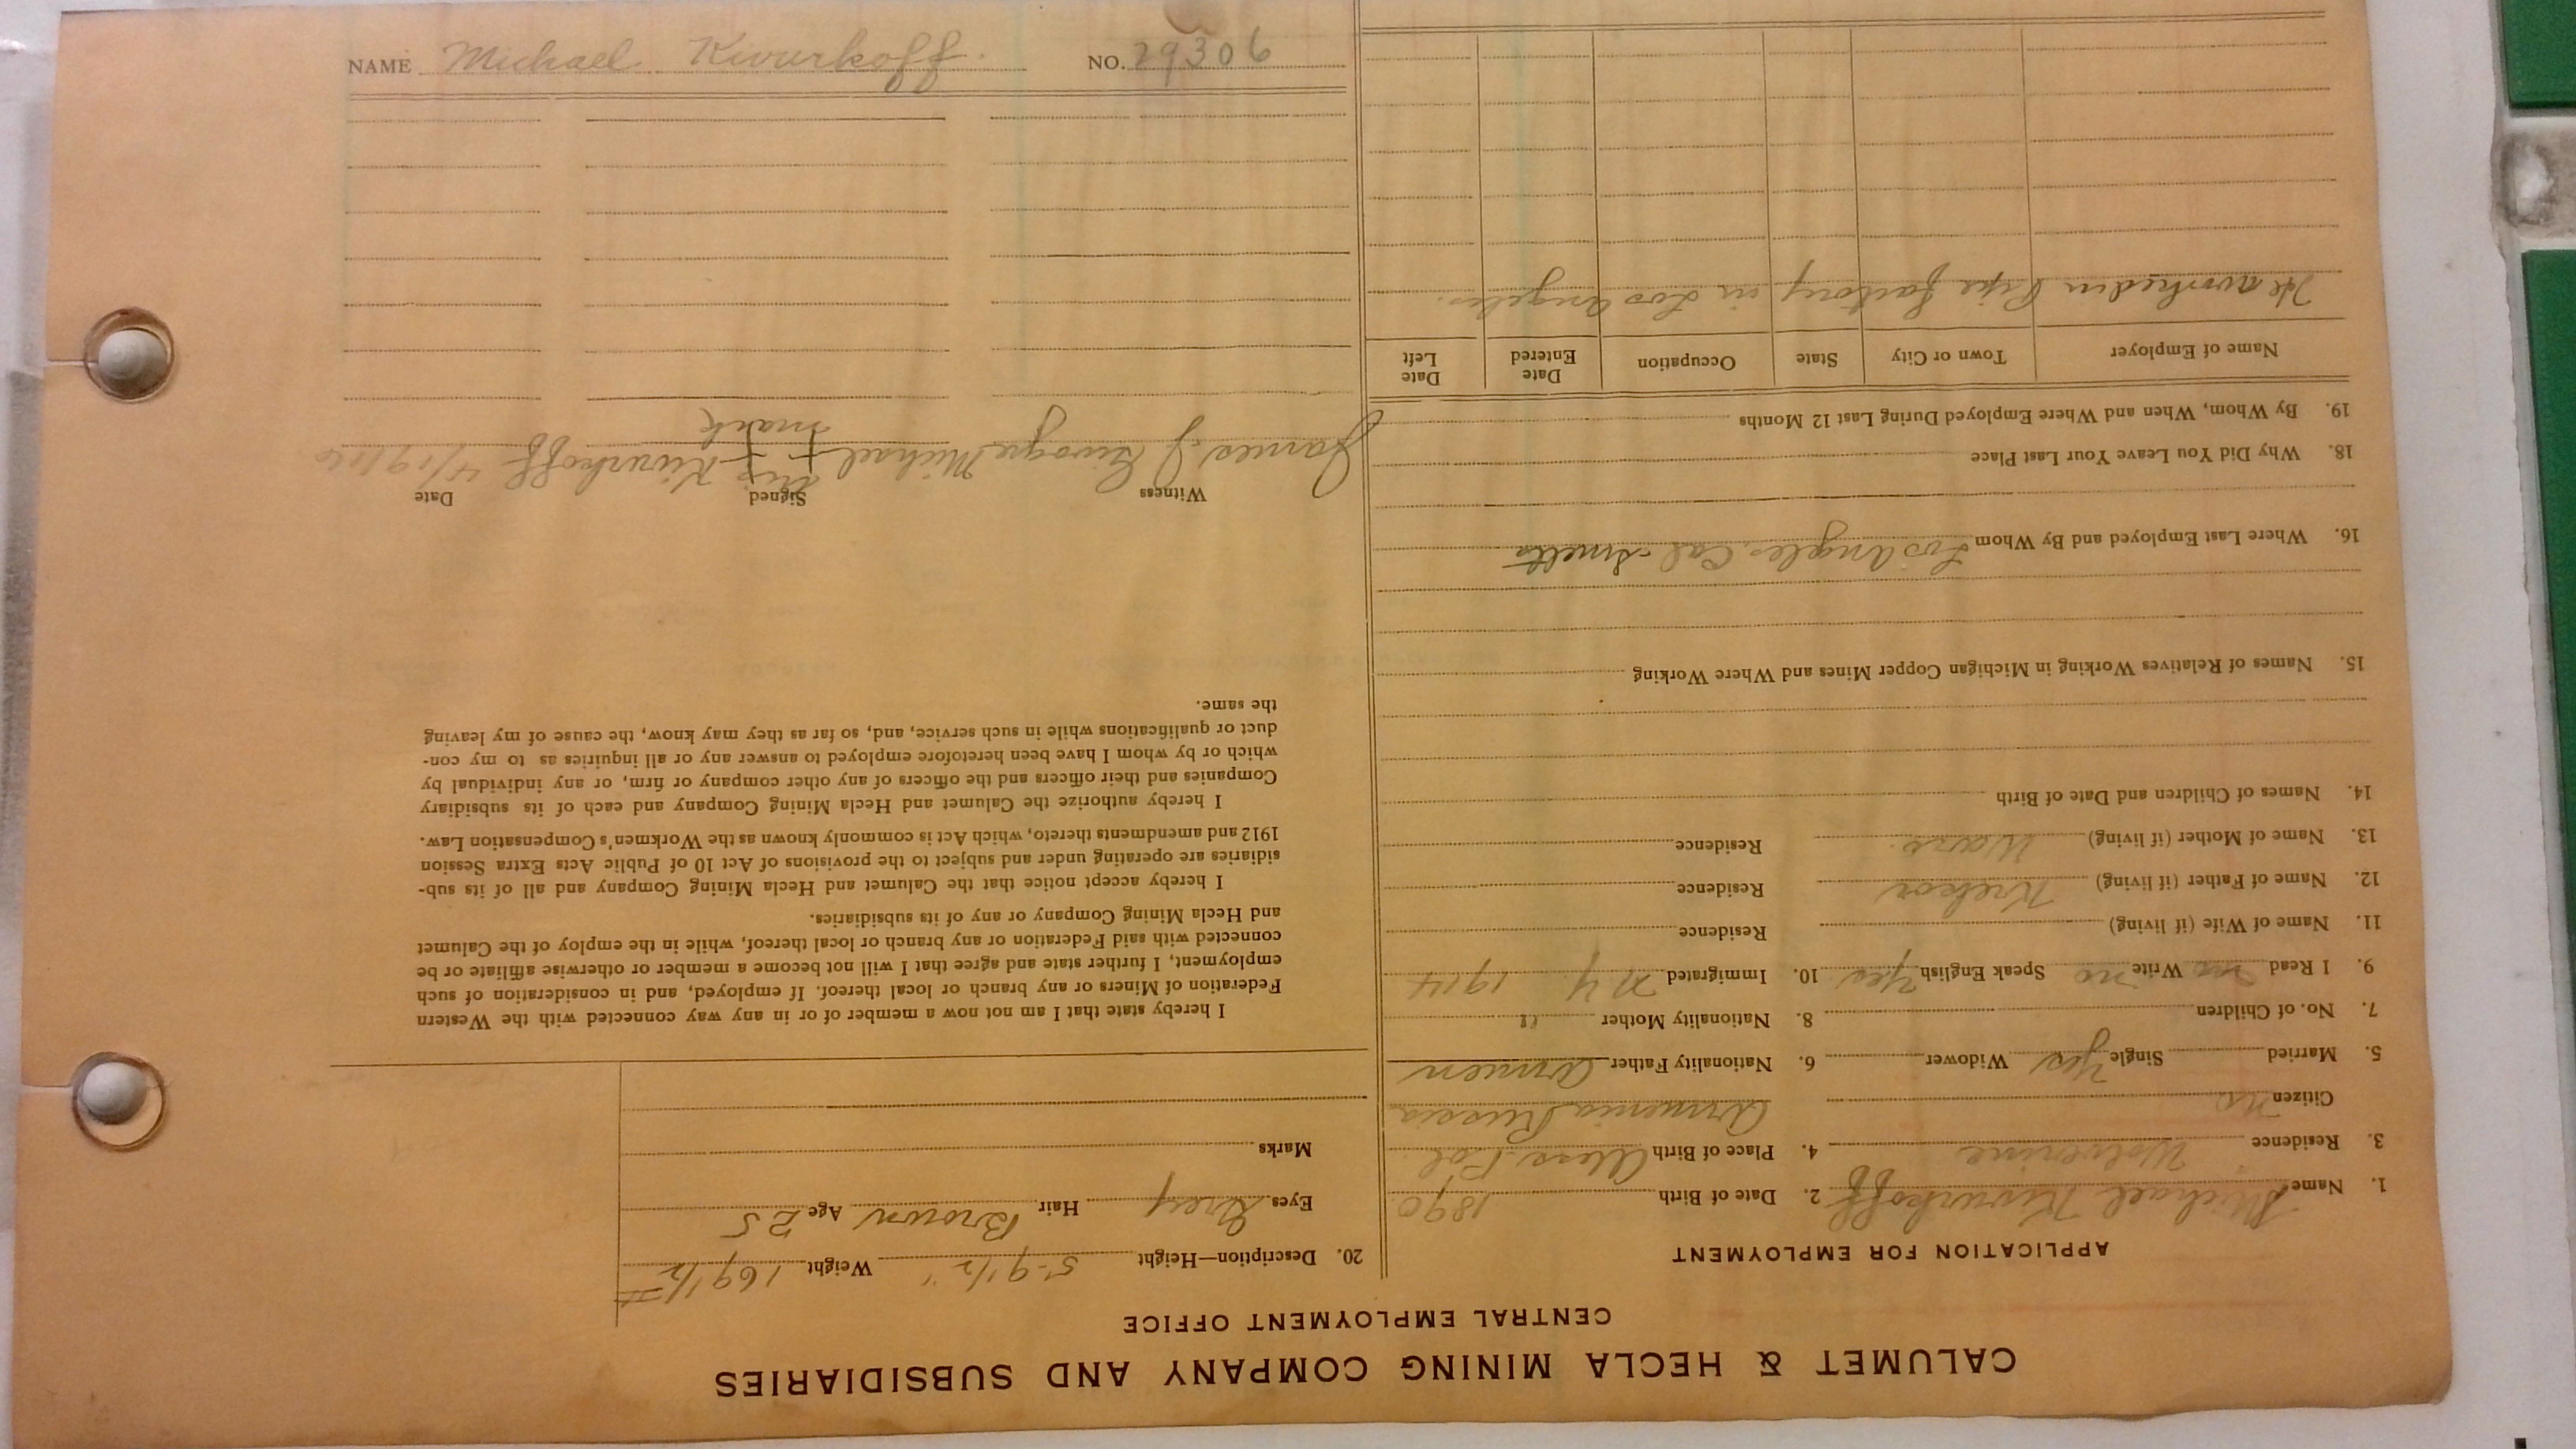 CALUMET & HECLA MINING COMPANY AND SUBSIDIARIES
CENTRAL EMPLOYMENT OFFICE
APPLICATION FOR EMPLOYMENT
1. Name Michael Kivurkoff 2. Date of Birth 1890
3. Residence Wolverine 4. Place of Birth
Citizen no Armenia Russia
5. Married Single Yes Widower 6. Nationality Father Armen
7. No. of Children 8. Nationality Mother "
9. I Read no Write no Speak English Yes 10. Immigrated N Y 1914
11. Name of Wife (if living) Residence
12. Name of Father (if living) Residence
13. Name of Mother (if living) Residence
14. Names of Children and Date of Birth
15. Names of Relatives Working in Michigan Copper Mines and Where Working
16. Where Last Employed and By Whom Los Angeles, Cal
18. Why Did You Leave Your Last Place
19. By Whom, When and Where Employed During Last 12 Months
Name of Employer Town or City State Occupation Date Entered Date Left
He worked in Pipe factory in Los Angeles.
20. Description—Height 5-9 1/2" Weight 169 1/2 #
Eyes Grey Hair Brown Age 25
Marks
I hereby state that I am not now a member of or in any way connected with the Western
Federation of Miners or any branch or local thereof. If employed, and in consideration of such
employment, I further state and agree that I will not become a member or otherwise affiliate or be
connected with said Federation or any branch or local thereof, while in the employ of the Calumet
and Hecla Mining Company or any of its subsidiaries.
I hereby accept notice that the Calumet and Hecla Mining Company and all of its sub-
sidiaries are operating under and subject to the provisions of Act 10 of Public Acts Extra Session
1912 and amendments thereto, which Act is commonly known as the Workmen's Compensation Law.
I hereby authorize the Calumet and Hecla Mining Company and each of its subsidiary
Companies and their officers and the officers of any other company or firm, or any individual by
which or by whom I have been heretofore employed to answer any or all inquiries as to my con-
duct or qualifications while in such service, and, so far as they may know, the cause of my leaving
the same.
Witness Signed Date
his
James J Michael + Kivurkoff
mark
NAME Michael Kivurkoff. NO. 29306